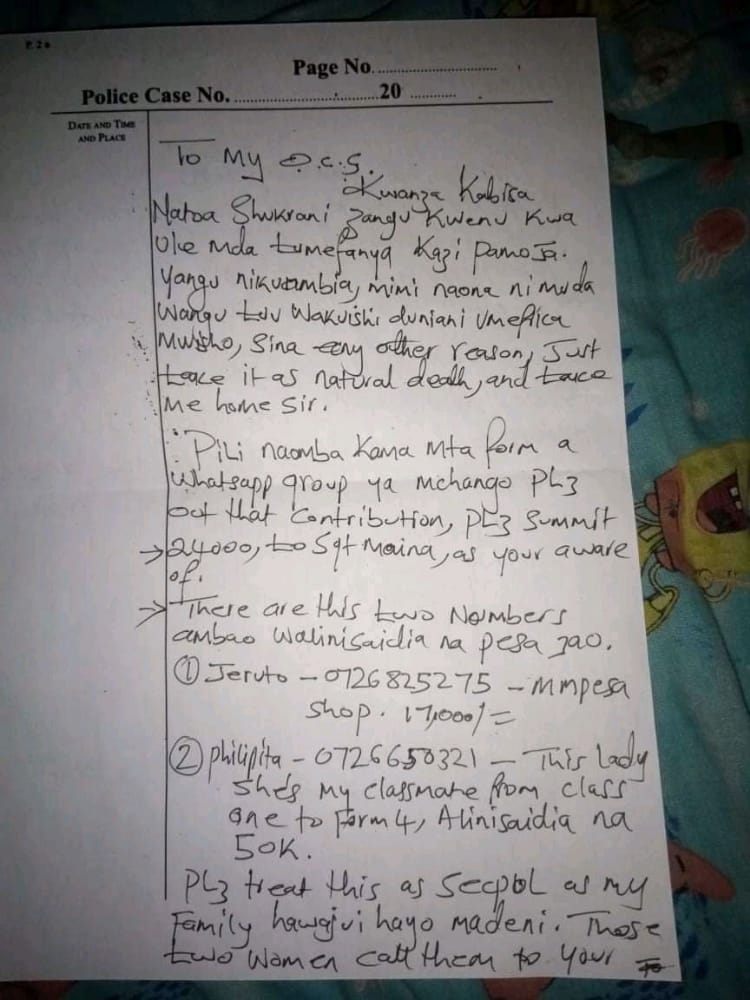 P.26
Page No.
Police Case No. 20
DATE AND TIME
AND PLACE
To My O.C.S.
Kwanza Kabisa
Natoa Shukrani zangu Kwenu Kwa
Ule mda tumefanya Kazi pamoja.
Yangu nikuambia, mimi naona ni muda
Wangu tuu Wakuishi duniani Umefica
Mwisho, Sina any other reason, Just
tace it as natural death, and tace
Me home Sir.
Pili naomba Kama Mta form a
Whatsapp group ya mchango PLz
out that Contribution, PLz Summit
→ 24000, to Sgt Maina, as your aware
of.
→ There are this two Nombers
ambao Walinisaidia na pesa zao.
① Jeruto - 0726825275 - Mmpesa
Shop. 17,000/=
② Philipita - 0726650321 - This lady
She's My Classmate from Class
one to Form 4, Alinisaidia na
50K.
PLz treat this as Secpol as my
Family hawajui hayo madeni. Those
two Women Call them to your